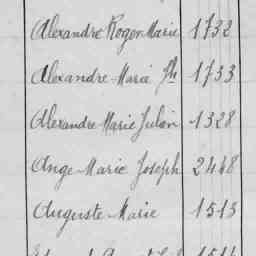 Alexandre Roger Marie 1732
Alexandre-Marie Jh 1733
Alexandre Marie Julien 1328
Ange-Marie Joseph 2448
Auguste-Marie 1513